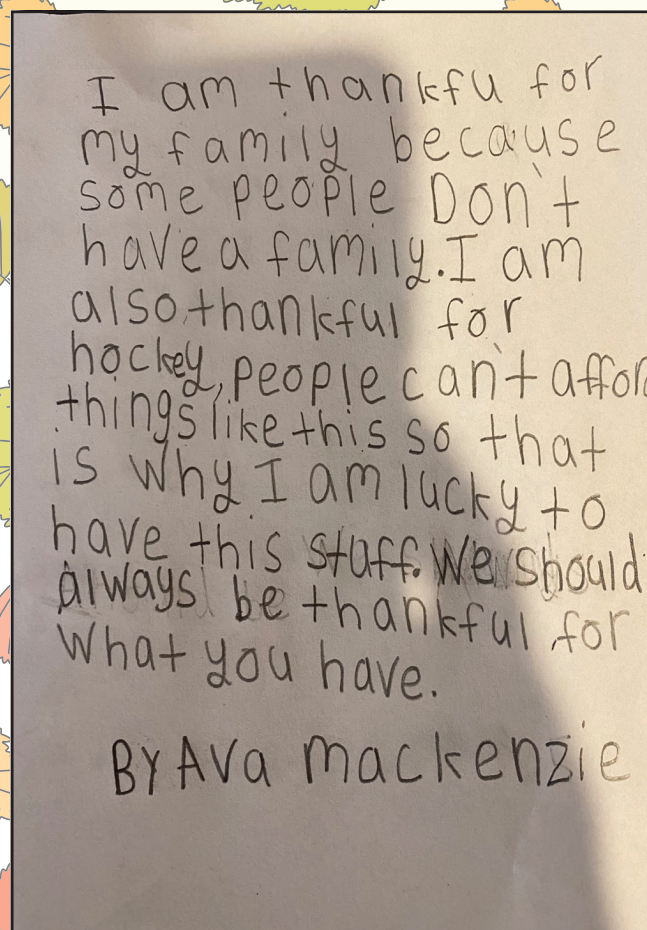 I am thankfu for
my family because
some people Don't
have a family. I am
also thankful for
hockey, people can't affor
things like this so that
is why I am lucky to
have this stuff. We should
always be thankful for
what you have.
By Ava mackenzie